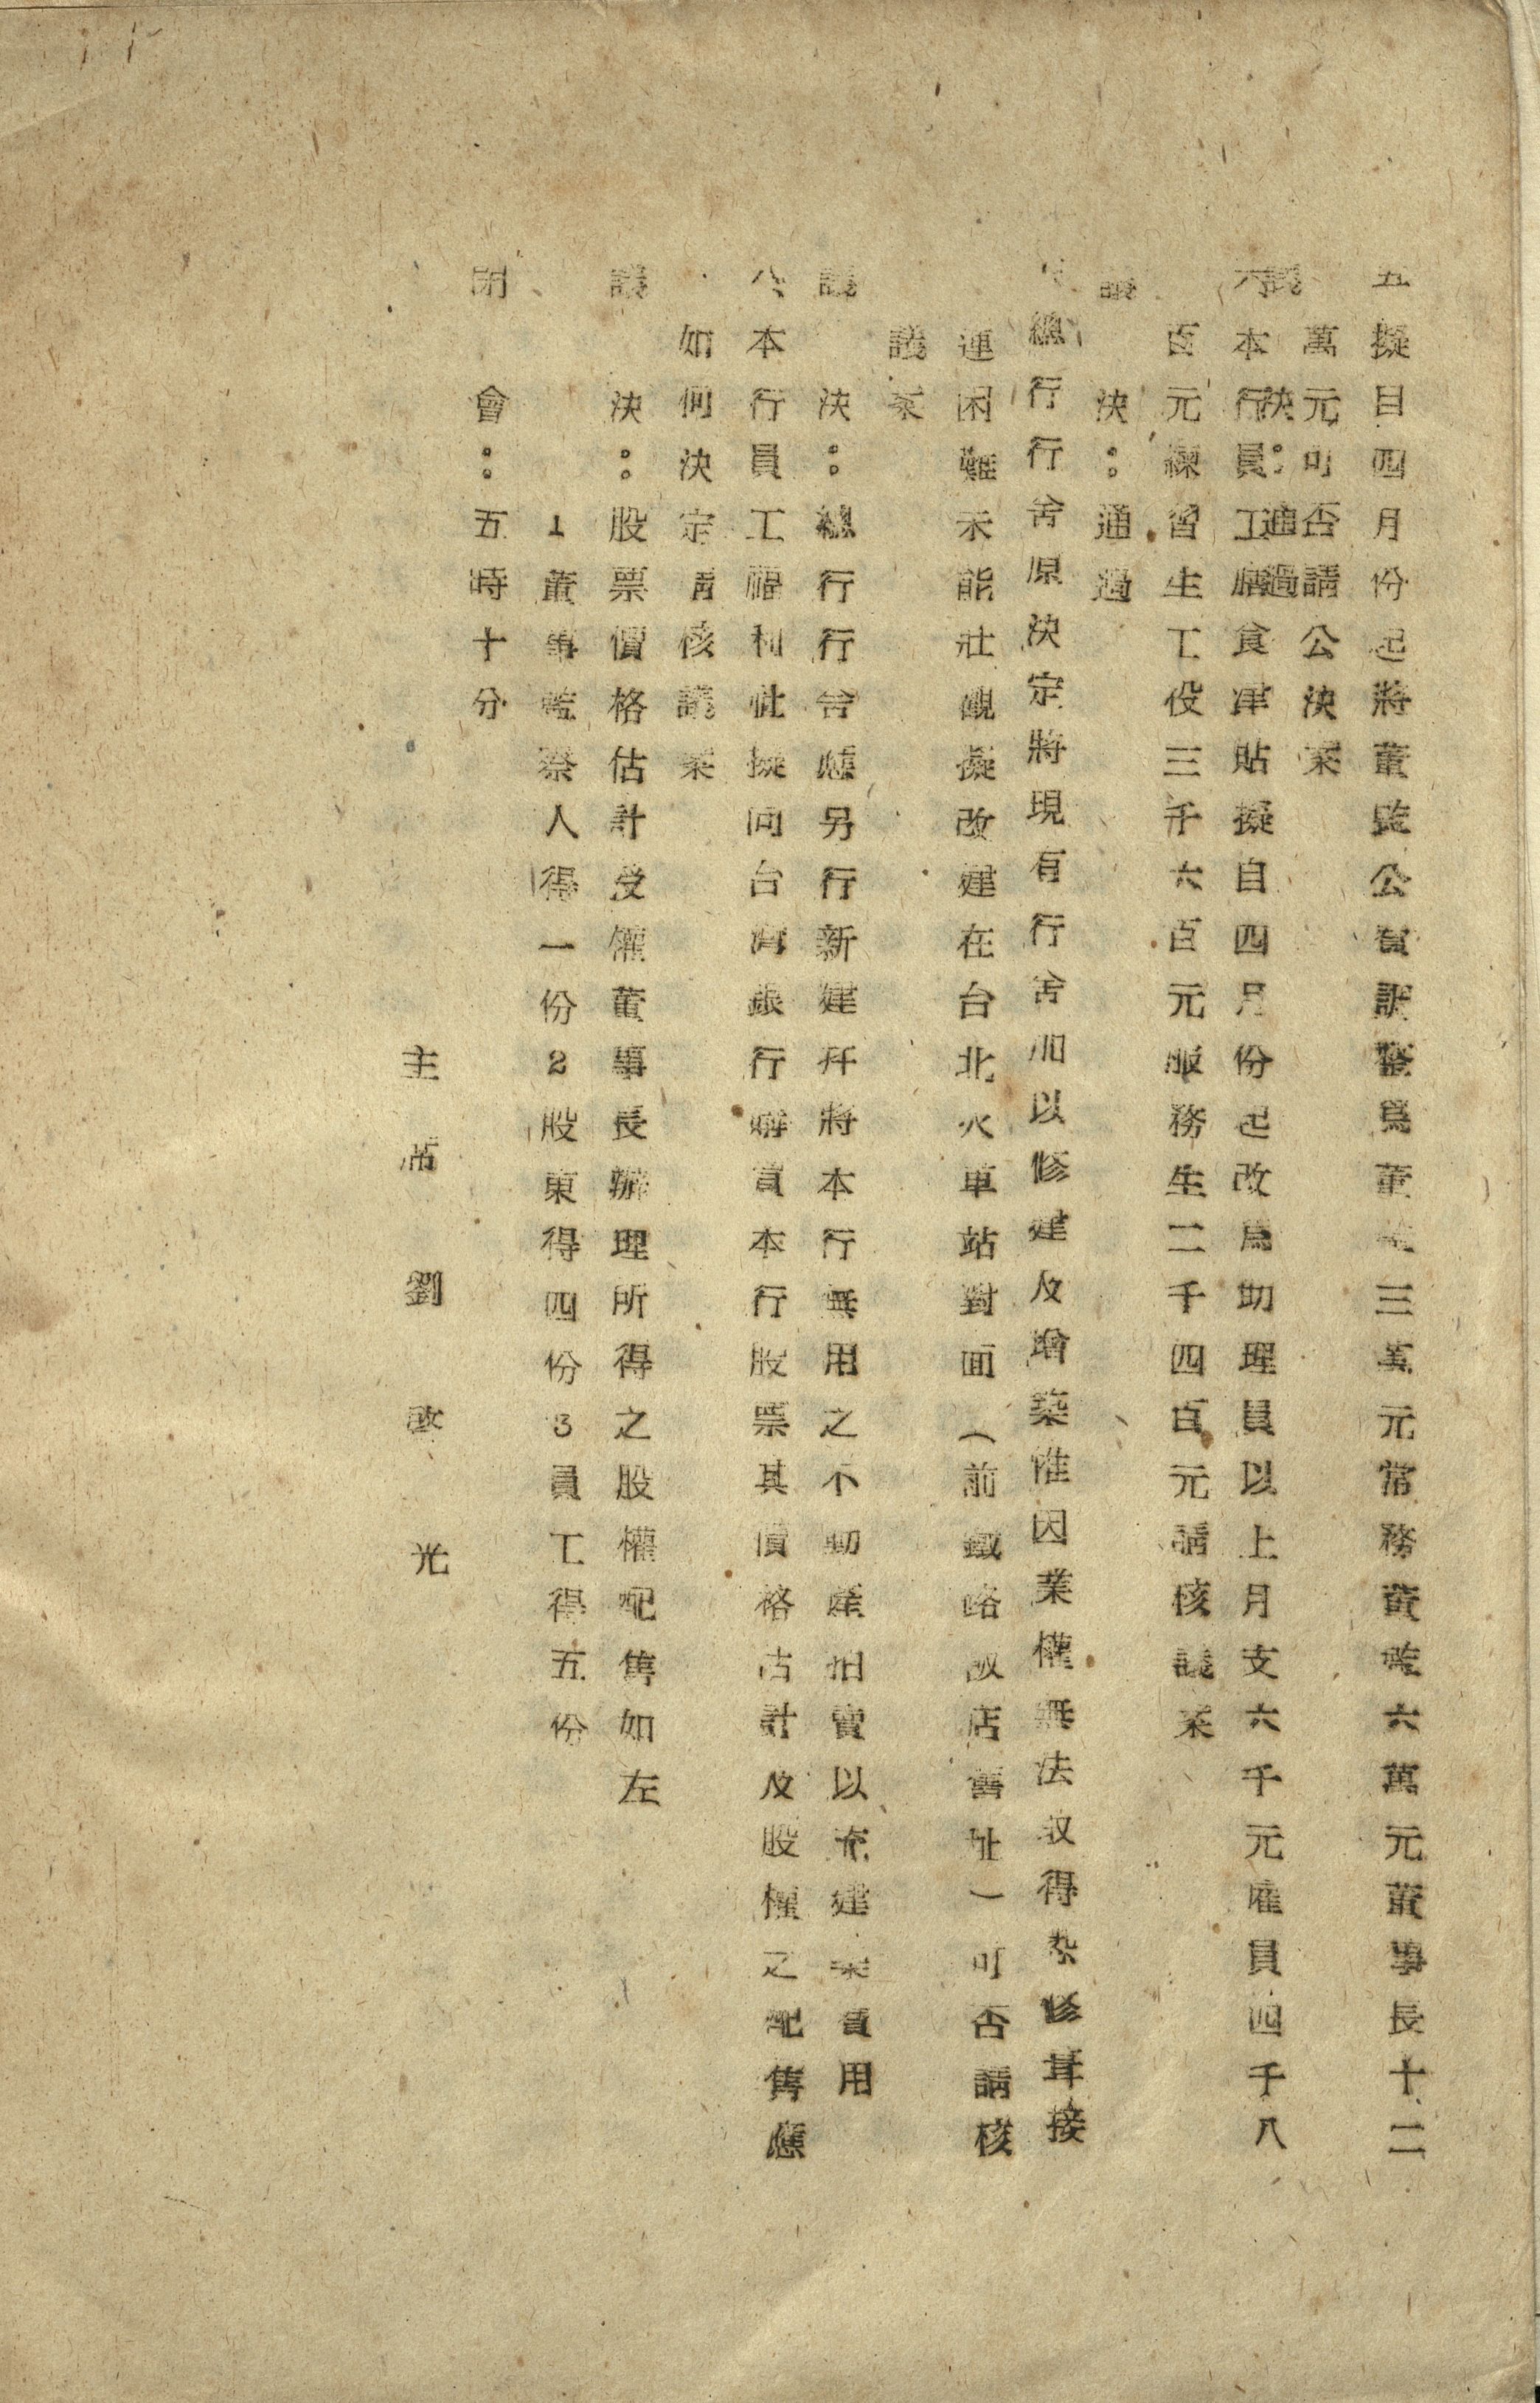 五擬自四月份起將董監公費調整爲董監三萬元常務董監六萬元董事長十二
萬元可否請公決案
議決：通過
六本行員工膳食津貼擬自四月份起改爲助理員以上月支六千元雇員四千八
百元練習生工役三千六百元服務生二千四百元請核議案
議決：通過
總行行舍原決定將現有行舍加以修建及增築惟因業權無法取得
連困難未能壯觀擬改建在台北火車站對面（前鐵路飯店舊址）可否請核
議案
議決：總行行舍應另行新建并將本行無用之不動產拍賣以充建築費用
八本行員工福利此擬向台灣銀行購買本行股票其價格估計及股權之配售應
如何決定請核議案
議決：股票價格估計受權董事長辦理所得之股權配售如左
1董事監察人得一份2股東得四份3員工得五份
閉會：五時十分
主席劉啟光